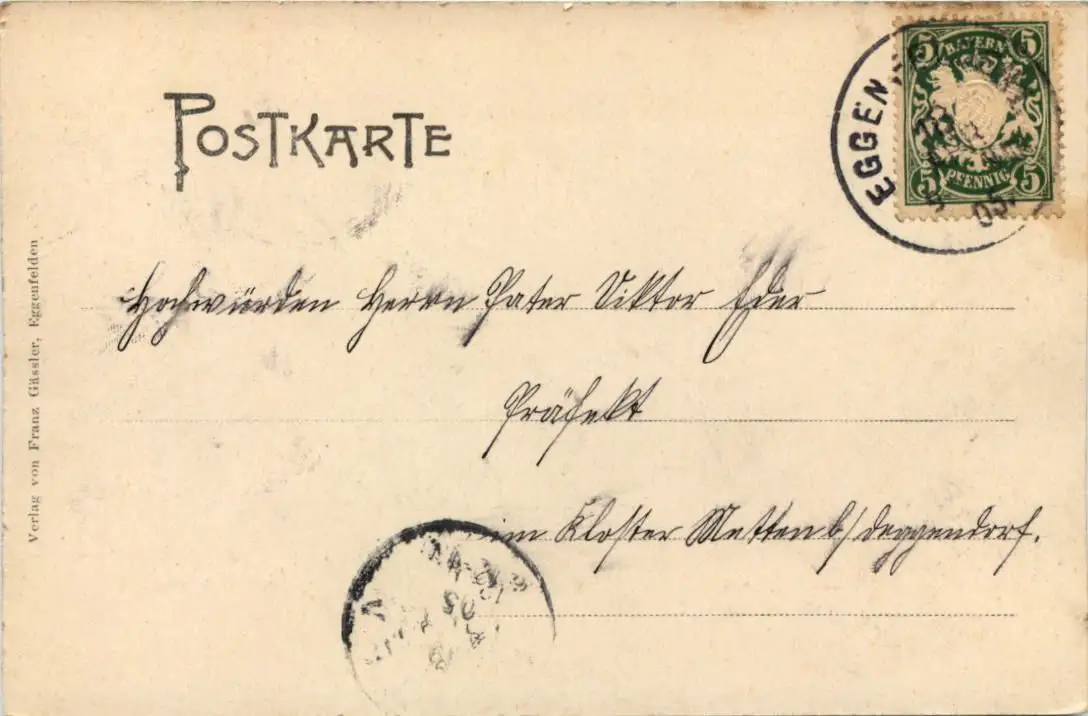 POSTKARTE
5 BAYERN 5
5 PFENNIG 5
EGGEN
05.
Hochwürden Herrn Pater Viktor Eder
Präfekt
im Kloster Metten b/Deggendorf.
Verlag von Franz Gässler, Eggenfelden